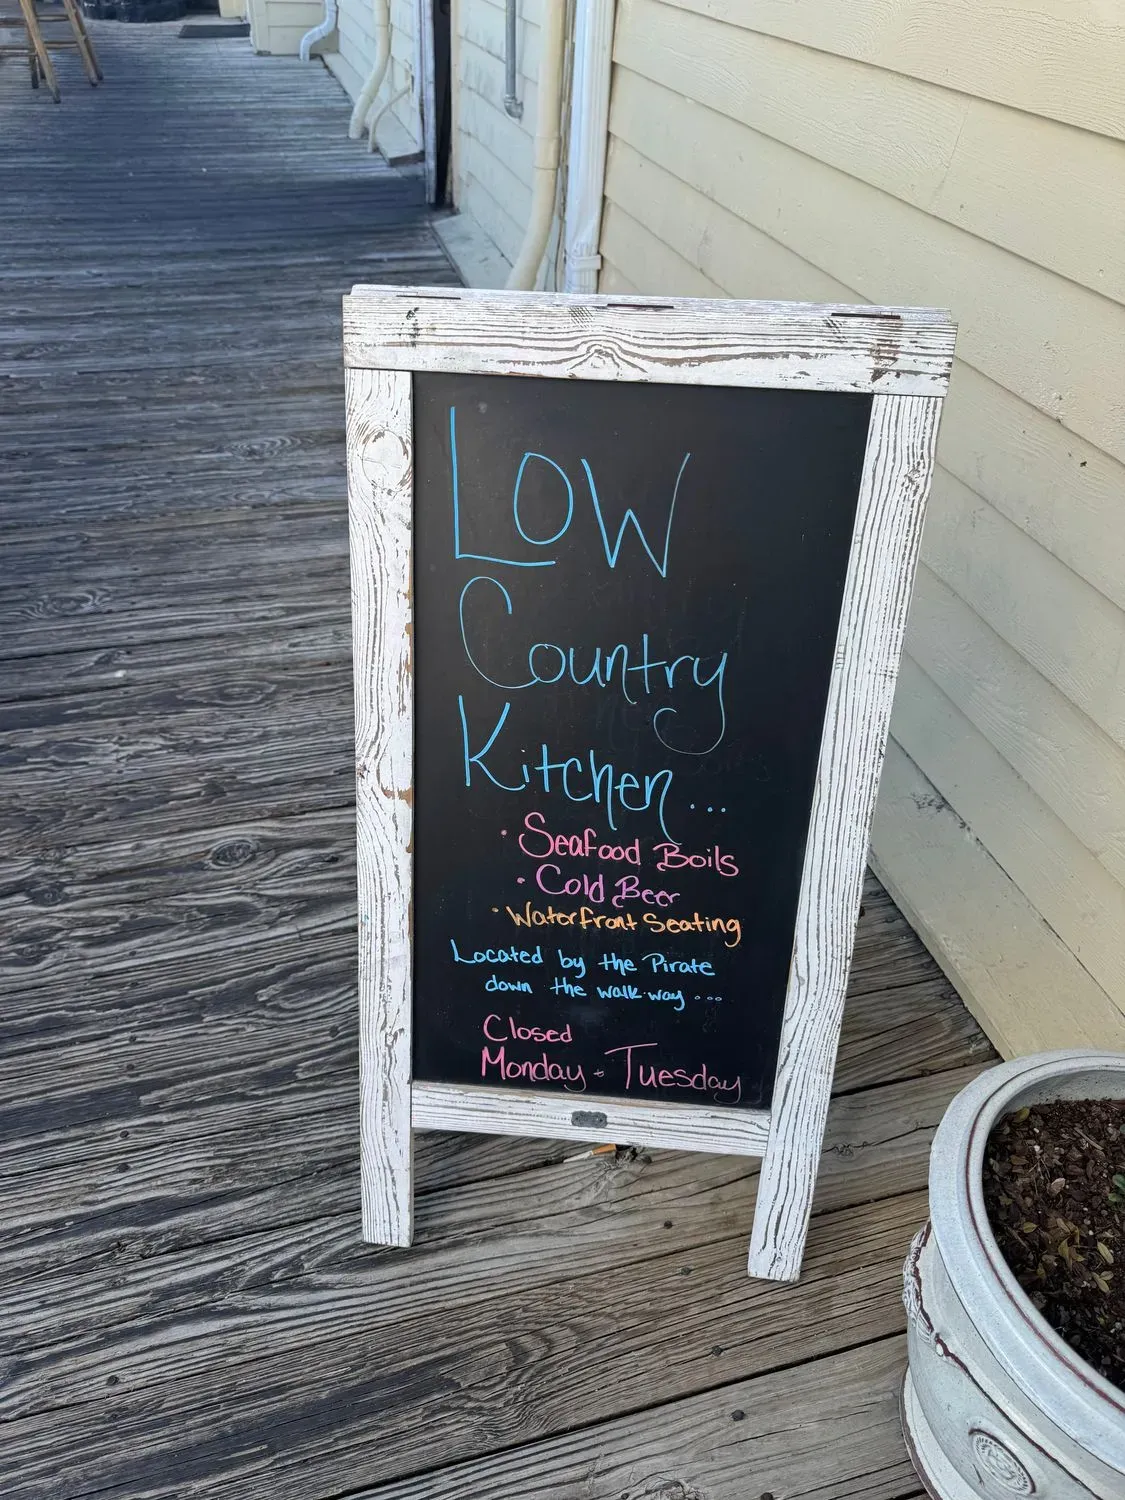 Low
Country
Kitchen...
• Seafood Boils
• Cold Beer
• Waterfront Seating
Located by the Pirate
down the walkway ...
Closed
Monday - Tuesday